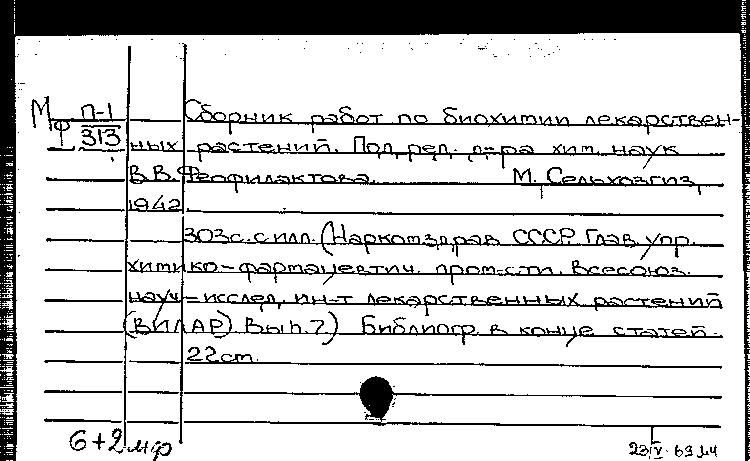 Мф П-1 Сборник работ по биохимии лекарствен-
313 ных растений. Под ред. д-ра хим. наук
В.В. Феофилактова. М. Сельхозгиз,
1942
303с. с илл. (Наркомздрав СССР. Глав. упр.
химико-фармацевтич. пром-сти. Всесоюз.
науч-исслед. ин-т лекарственных растений
(ВИЛАР) Вып. 7) Библиогр. в конце статей.
22 см.
6+2 мф 23/V-63